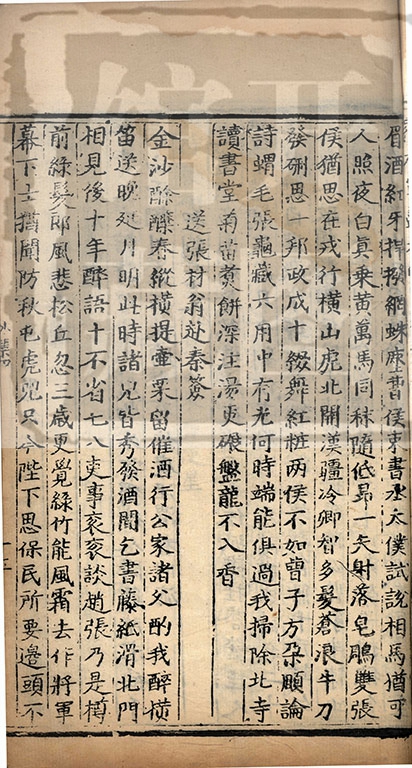 眉酒紅牙捍撥網蛛塵曹侯束書丞太僕試說相馬猶可
人照夜白真乗黄萬馬同秣隨低昻一矢射落皂鵰雙張
侯猶思在戎行横山虎北開漢疆冷卿智多髮蒼浪牛刀
發硎思一邦政成十綴舞紅粧两侯不如曹子方朶頤論
詩蝟毛張龜藏六用中有光何時端能俱過我掃除北寺
讀書堂菊苗煑餅深注湯更碾盤龍不入香
送張材翁赴秦簽
金沙酴醿春縱横提壷栗留催酒行公家諸父酌我醉横
笛送晚延月明此時諸兄皆秀發酒闌乞書藤紙滑北門
相見後十年醉語十不省七八吏事衮衮談趙張乃是樽
前緑髮郎風悲松丘忽三歲更覺緑竹能風霜去作將軍
幕下士猶聞防秋屯虎兕只今陛下思保民所要邊頭不